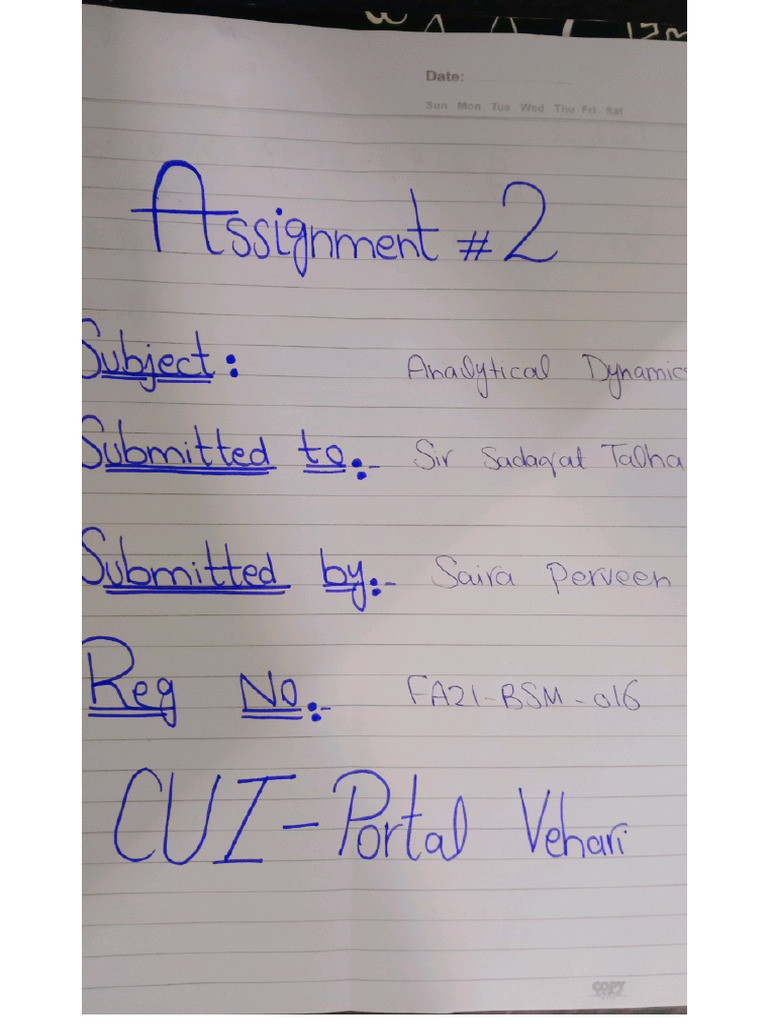 Date:
Sun Mon Tue Wed Thu Fri Sat
Assignment # 2
Subject: Analytical Dynamics
Submitted to:- Sir Sadaqat Talha
Submitted by:- Saira Perveen
Reg No:- FA21-BSM-016
CUI-Portal Vehari
COPY